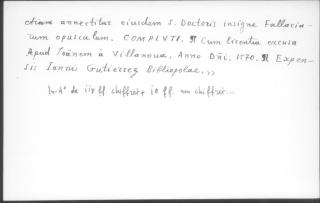 etiam annectitur eiusdem S. Doctoris insigne Fallacia-
rum opusculum. COMPLVTI. ¶ Cum licentia excusa
Apud Ioānem à Villanoua, Anno Dñi. 1570. ¶ Expen-
sis Ioannis Gutierrez Bibliopolae.,,
In-4º de 118 ff. chiffrés + 10 ff. non chiffrés.-